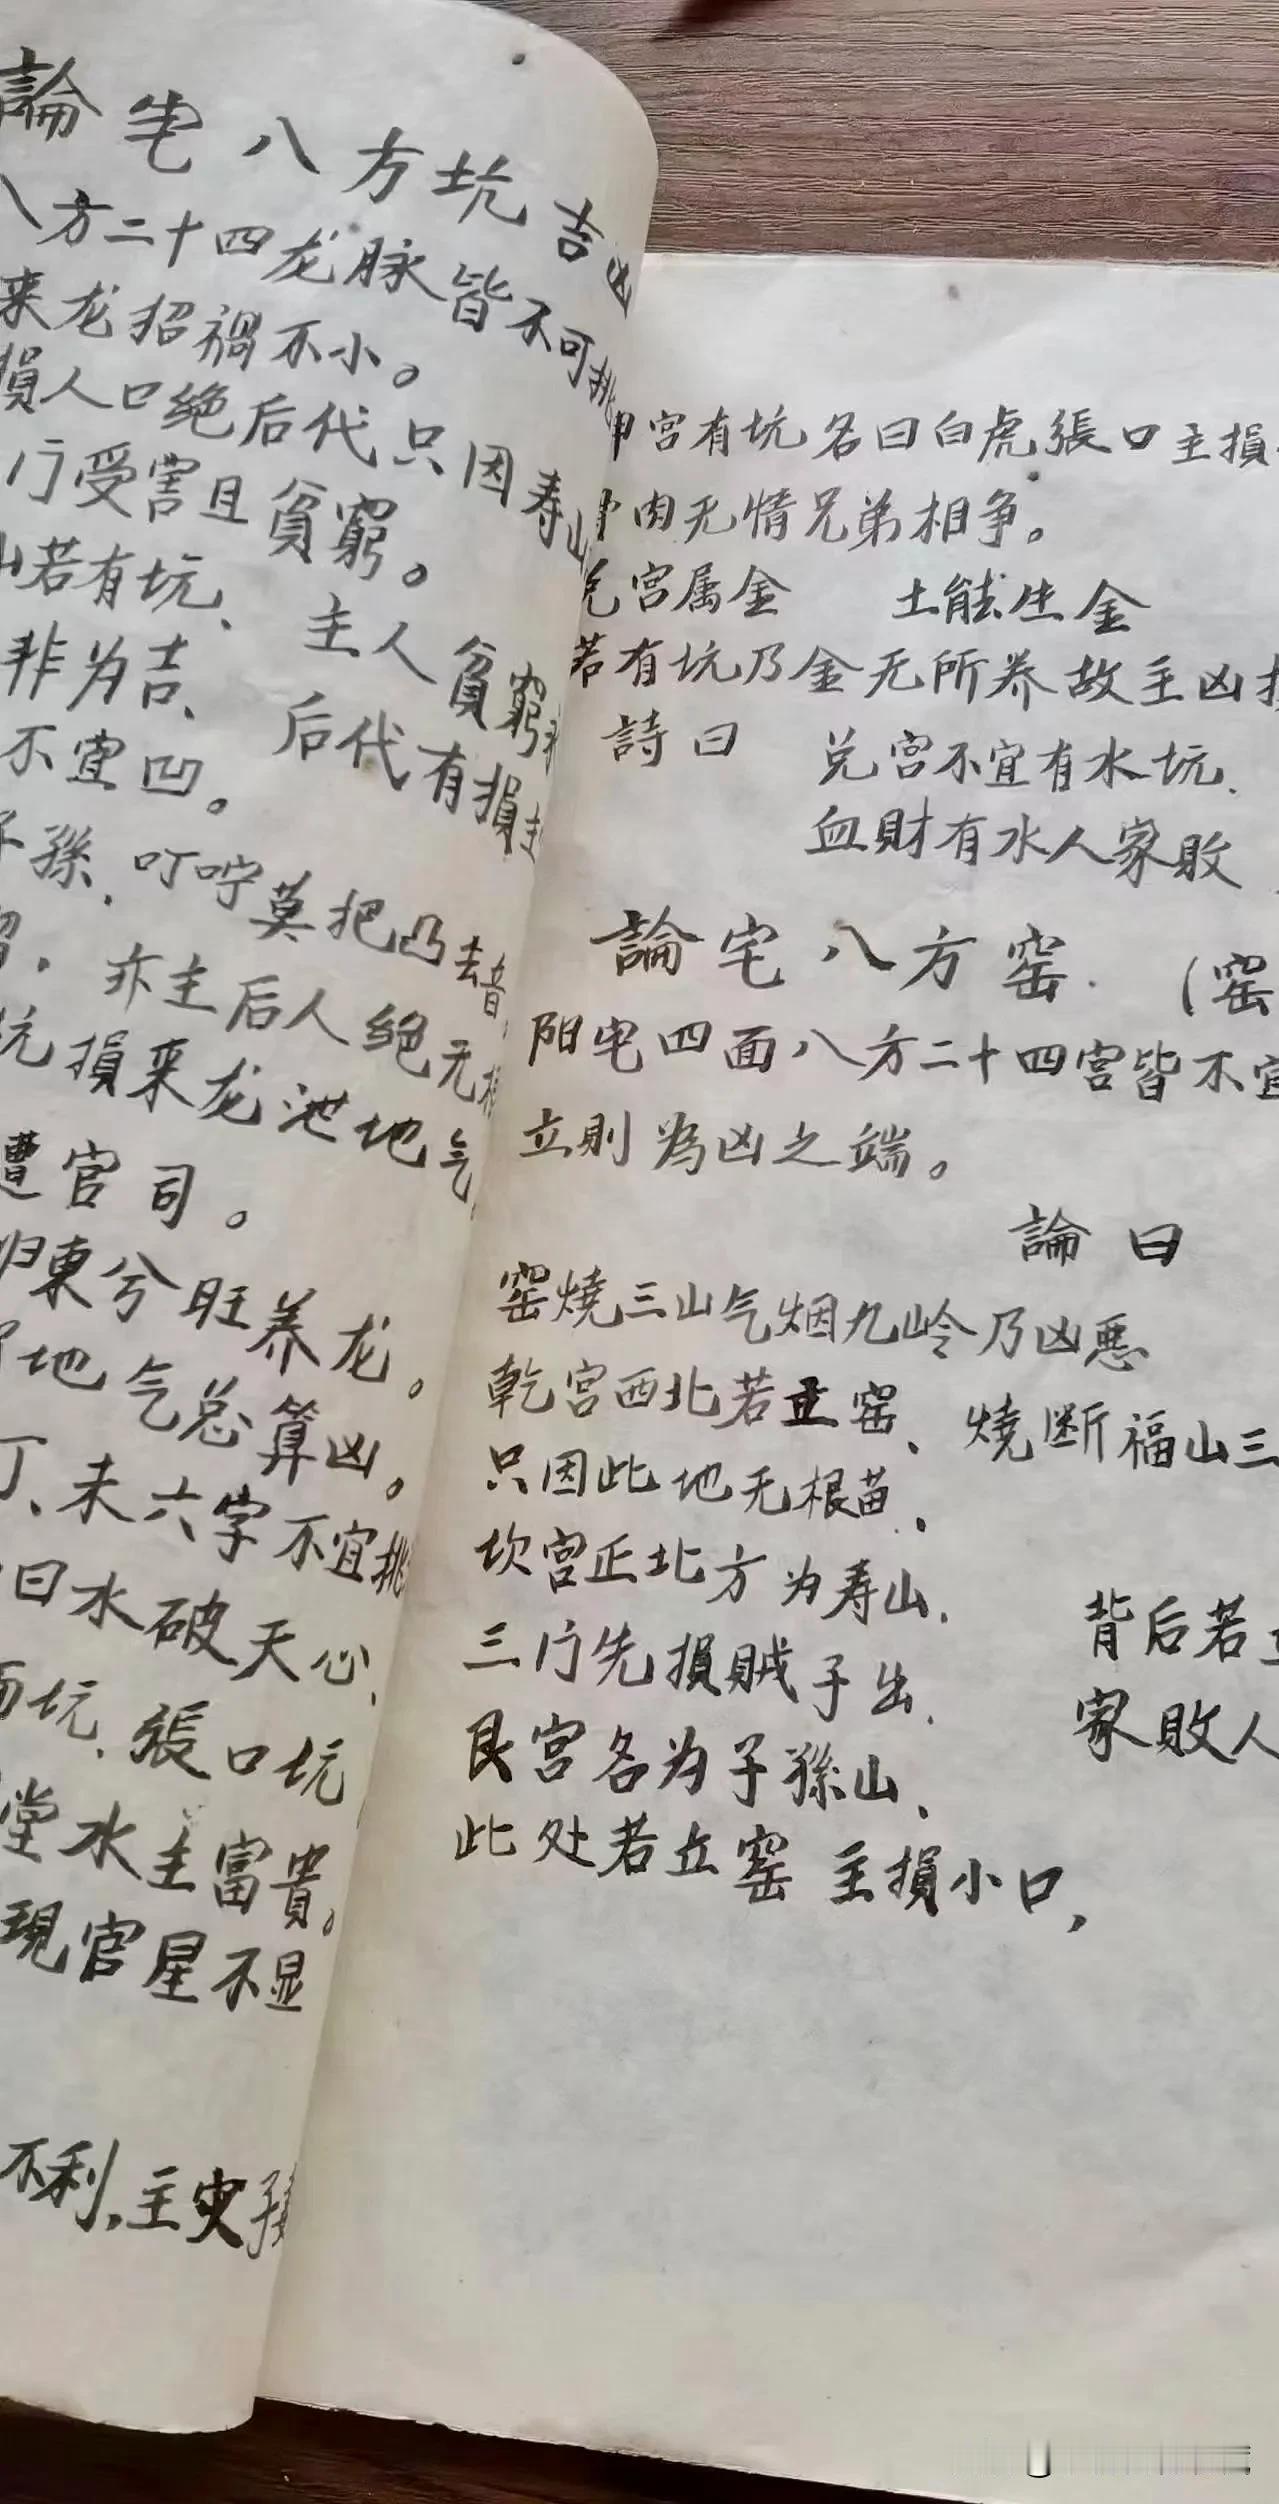 論宅八方坑吉凶
八方二十四龙脉皆不可挑
来龙招禍不小。
損人口绝后代只因寿山
门受害且貧窮。
山若有坑、 主人貧窮
非为吉、 后代有損
不宜凹。
子孫、叮咛莫把凸去
亦主后人绝无根
坑損来龙泄地气
遭官司。
归東兮旺养龙。
地气总算凶。
丁、未六字不宜挑
曰水破天心、
坑、張口坑
堂水主富貴。
現官星不显
不利,主灾
申宫有坑名曰白虎張口主損
骨肉无情兄弟相争。
兑宫属金 土能生金
若有坑乃金无所养故主凶
詩曰 兑宫不宜有水坑、
血財有水人家败
論宅八方窑 (窑
阳宅四面八方二十四宫皆不宜
立則為凶之端。
論曰
窑燒三山气烟九岭乃凶恶
乾宫西北若立窑、燒断福山三
只因此地无根苗、
坎宫正北方为寿山、 背后若立
三门先損賊子出、 家败人
艮宫名为子孫山、
此处若立窑 主損小口,